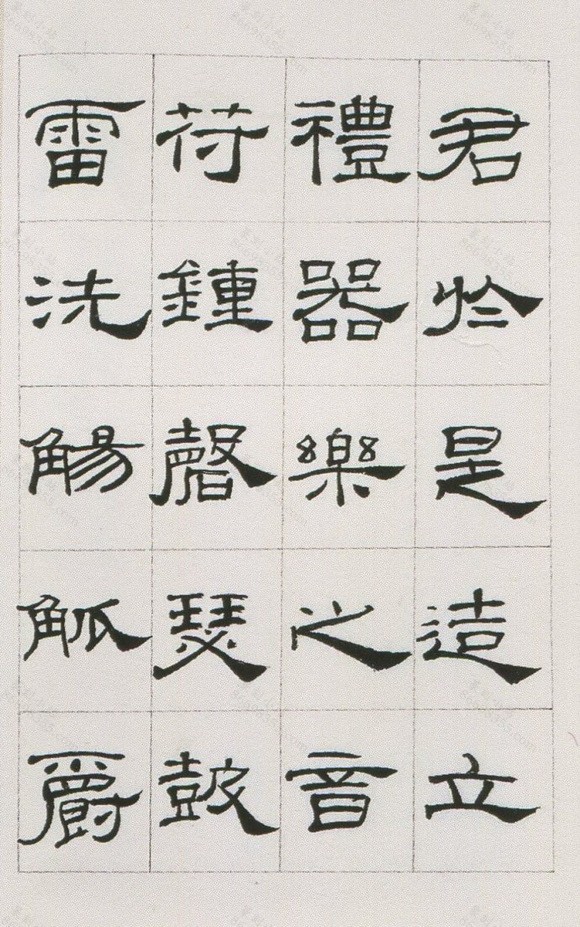 君於是造立
禮器樂之音
苻鍾磬瑟鼓
雷洗觴觚爵